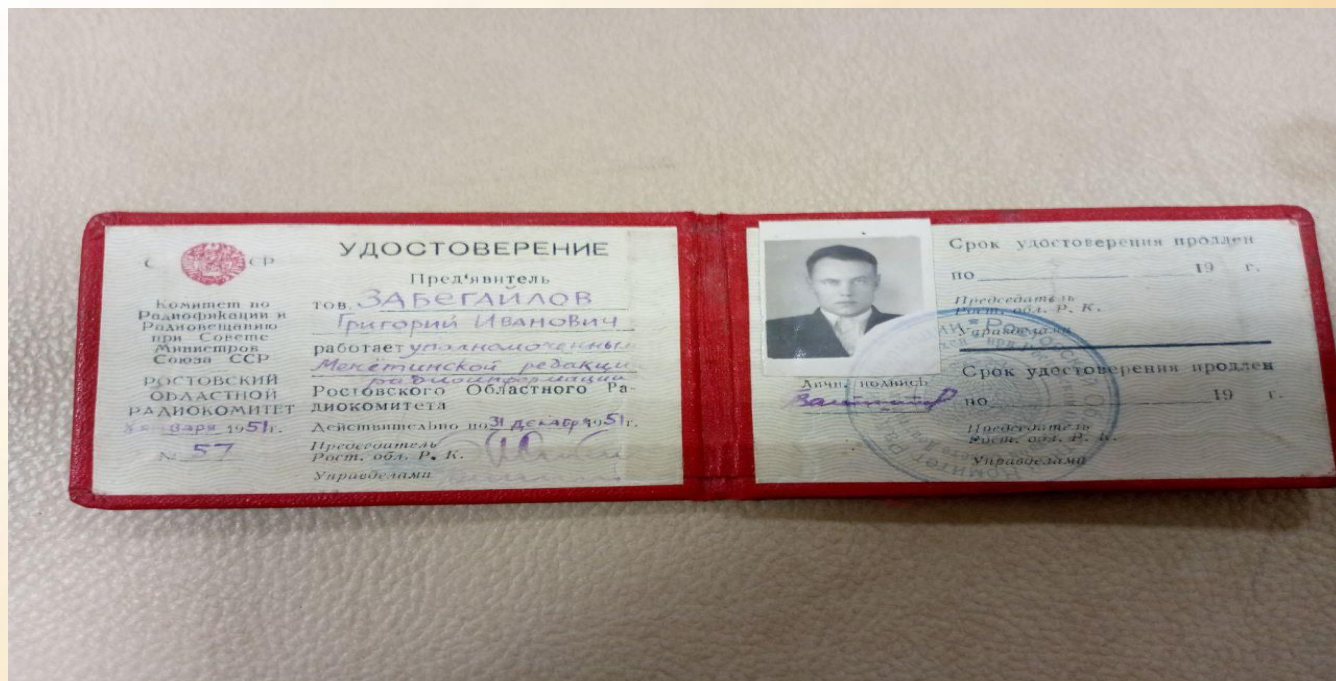 С СР
Комитет по
Радиофикации и
Радиовещанию
при Совете
Министров
Союза ССР
РОСТОВСКИЙ
ОБЛАСТНОЙ
РАДИОКОМИТЕТ
января 1951г.
№ 57
УДОСТОВЕРЕНИЕ
Пред'явитель
тов. ЗАБЕГАЙЛОВ
Григорий Иванович
работает уполномоченным
Мечетинской редакции
радиоинформации
Ростовского Областного Ра-
диокомитета
Действительно по 31 декабря 1951г.
Председатель
Рост. обл. Р. К.
Управделами
Личн. подпись
Срок удостоверения продлен
по 19 г.
Председатель
Рост. обл. Р. К.
Управделами
Срок удостоверения продлен
по 19 г.
Председатель
Рост. обл. Р. К.
Управделами